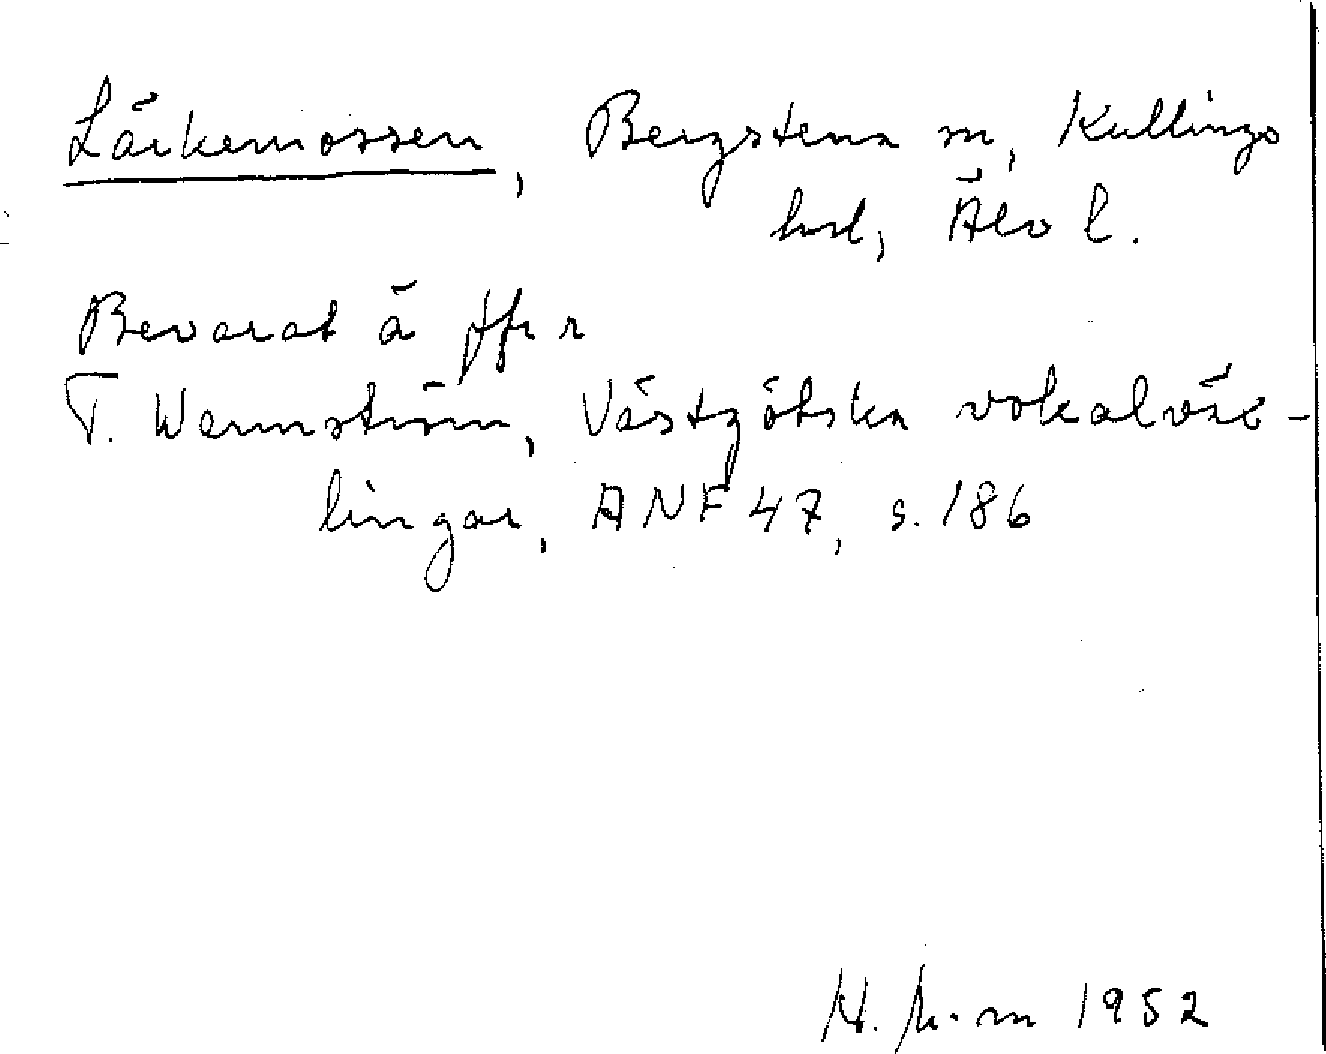 Lärkemossen, Bergstena sn, Kullings
hd, Älvs l.
Bevarat ä ffr r
T. Wennström, Västgötska vokalväx-
lingar, ANF 47, s. 186
1952